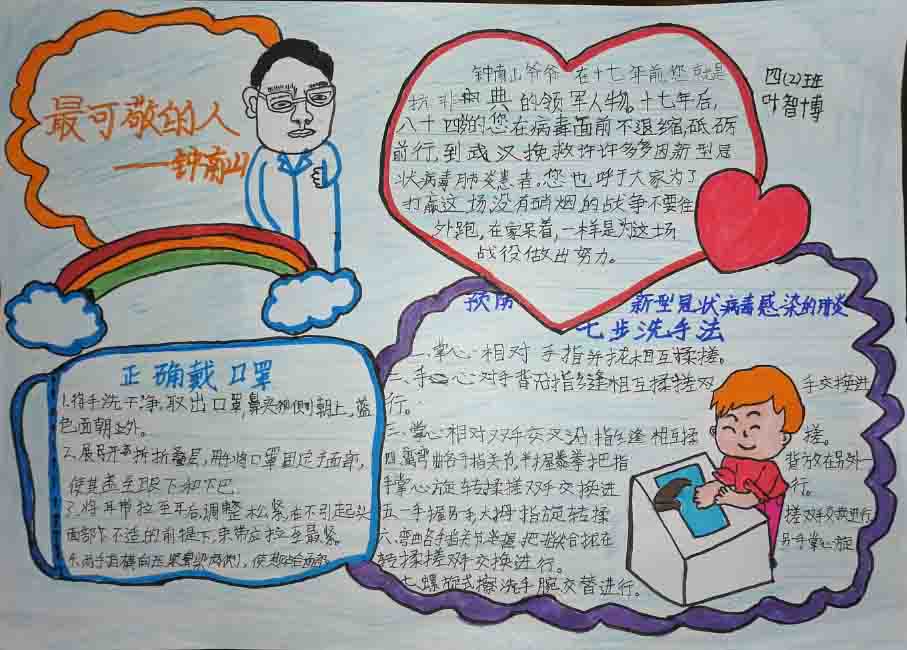 最可敬的人
——钟南山
四(2)班
叶智博
钟南山爷爷 在十七年前您就是
抗 典的领军人物。十七年后,
八十四岁的您在病毒面前不退缩,砥砺
前行,到武汉挽救许许多多因新型冠
状病毒肺炎患者。您也呼于大家为了
打赢这场没有硝烟的战争不要住
外跑,在家呆着,一样是为这场
战役做出努力。
预防 新型冠状病毒感染的肺炎
七步洗手法
一、掌心相对 手指并拢相互揉搓。
二、手心对手背沿指缝相互揉搓双 手交换进
行。
三、掌心相对双手交叉沿指缝相互揉 搓。
四、弯曲各手指关节,半握拳把指 背放在另外一
手掌心旋转揉搓双手交换进 行。
五、一手握另手大拇指旋转揉 搓双手交换进行
六、弯曲各手指关节 把指尖合拢在 另手掌心旋
转揉搓双手交换进行。
七、螺旋式擦洗手腕交替进行。
正确戴口罩
1.将手洗干净,取出口罩,鼻夹侧朝上,蓝
色面朝外。
2. 折叠层,用手将口罩固定于面部,
使其 下和下巴。
3.将耳带拉至耳后,调整松紧,在不引起头
面部 不适的前提下, 应拉至最紧。
4.两手指横向